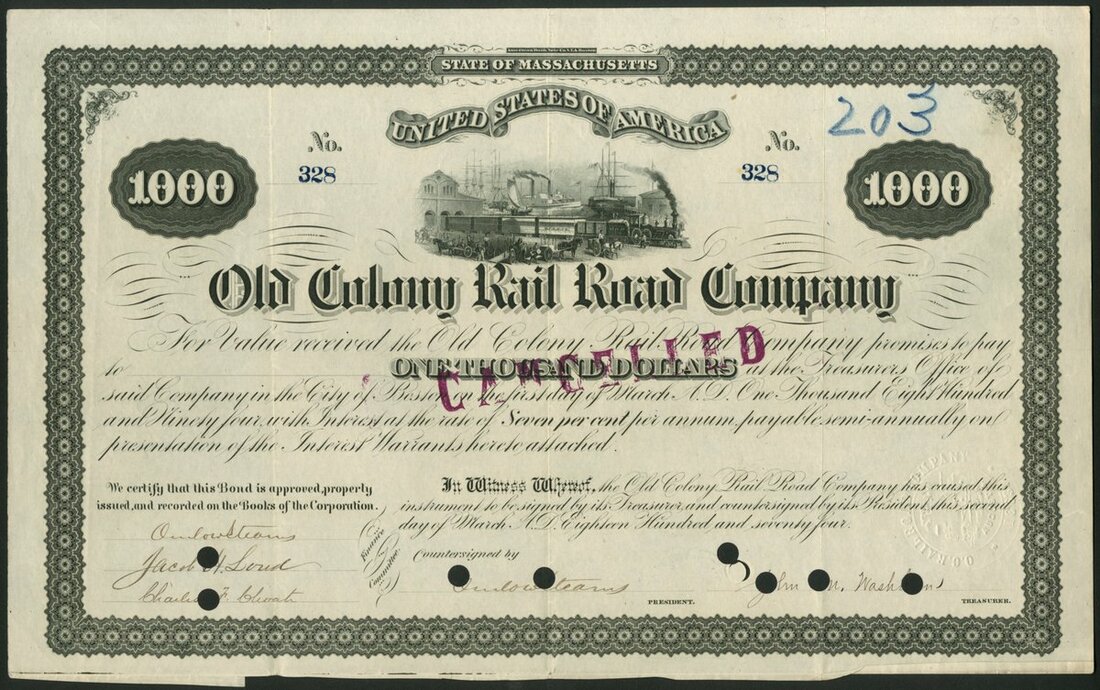 American Bank Note Co. N.Y. & Boston
STATE OF MASSACHUSETTS
UNITED STATES OF AMERICA
203
No. No.
328 328
1000 1000
Old Colony Rail Road Company
For Value received the Old Colony Rail Road Company promises to pay
to ONE THOUSAND DOLLARS at the Treasurers Office of
said Company in the City of Boston on the first day of March A.D. One Thousand Eight Hundred
and Ninety four, with Interest at the rate of Seven per cent per annum, payable semi-annually on
presentation of the Interest Warrants hereto attached.
CANCELLED
We certify that this Bond is approved, properly
issued, and recorded on the Books of the Corporation.
Onslow Stearns
Jacob H. Loud
Charles F. Choate
Finance
Committee.
In Witness Whereof, the Old Colony Rail Road Company has caused this
instrument to be signed by its Treasurer and countersigned by its President, this second
day of March A.D. Eighteen Hundred and seventy four.
Countersigned by
Onslow Stearns
PRESIDENT.
John M. Washburn
TREASURER.